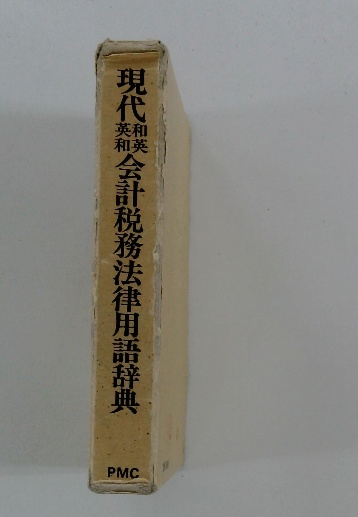 現代
和英
英和
会計税務法律用語辞典
PMC